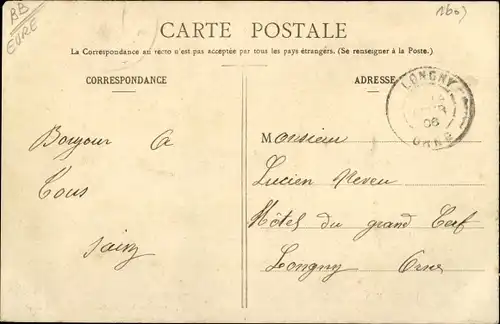 BB
EURE
1603
CARTE POSTALE
La Correspondance au recto n'est pas acceptée par tous les pays étrangers. (Se renseigner à la Poste.)
CORRESPONDANCE
ADRESSE
LONGNY
06
ORNE
Bonjour a
Tous
Monsieur
Lucien Neveu
Hôtel du grand Cerf
Longny Orne